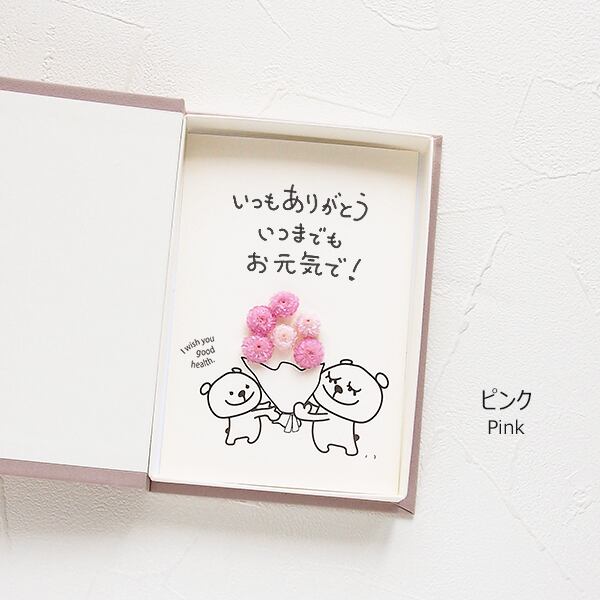 いつもありがとう
いつまでも
お元気で!
I wish you
good
health.
ピンク
Pink